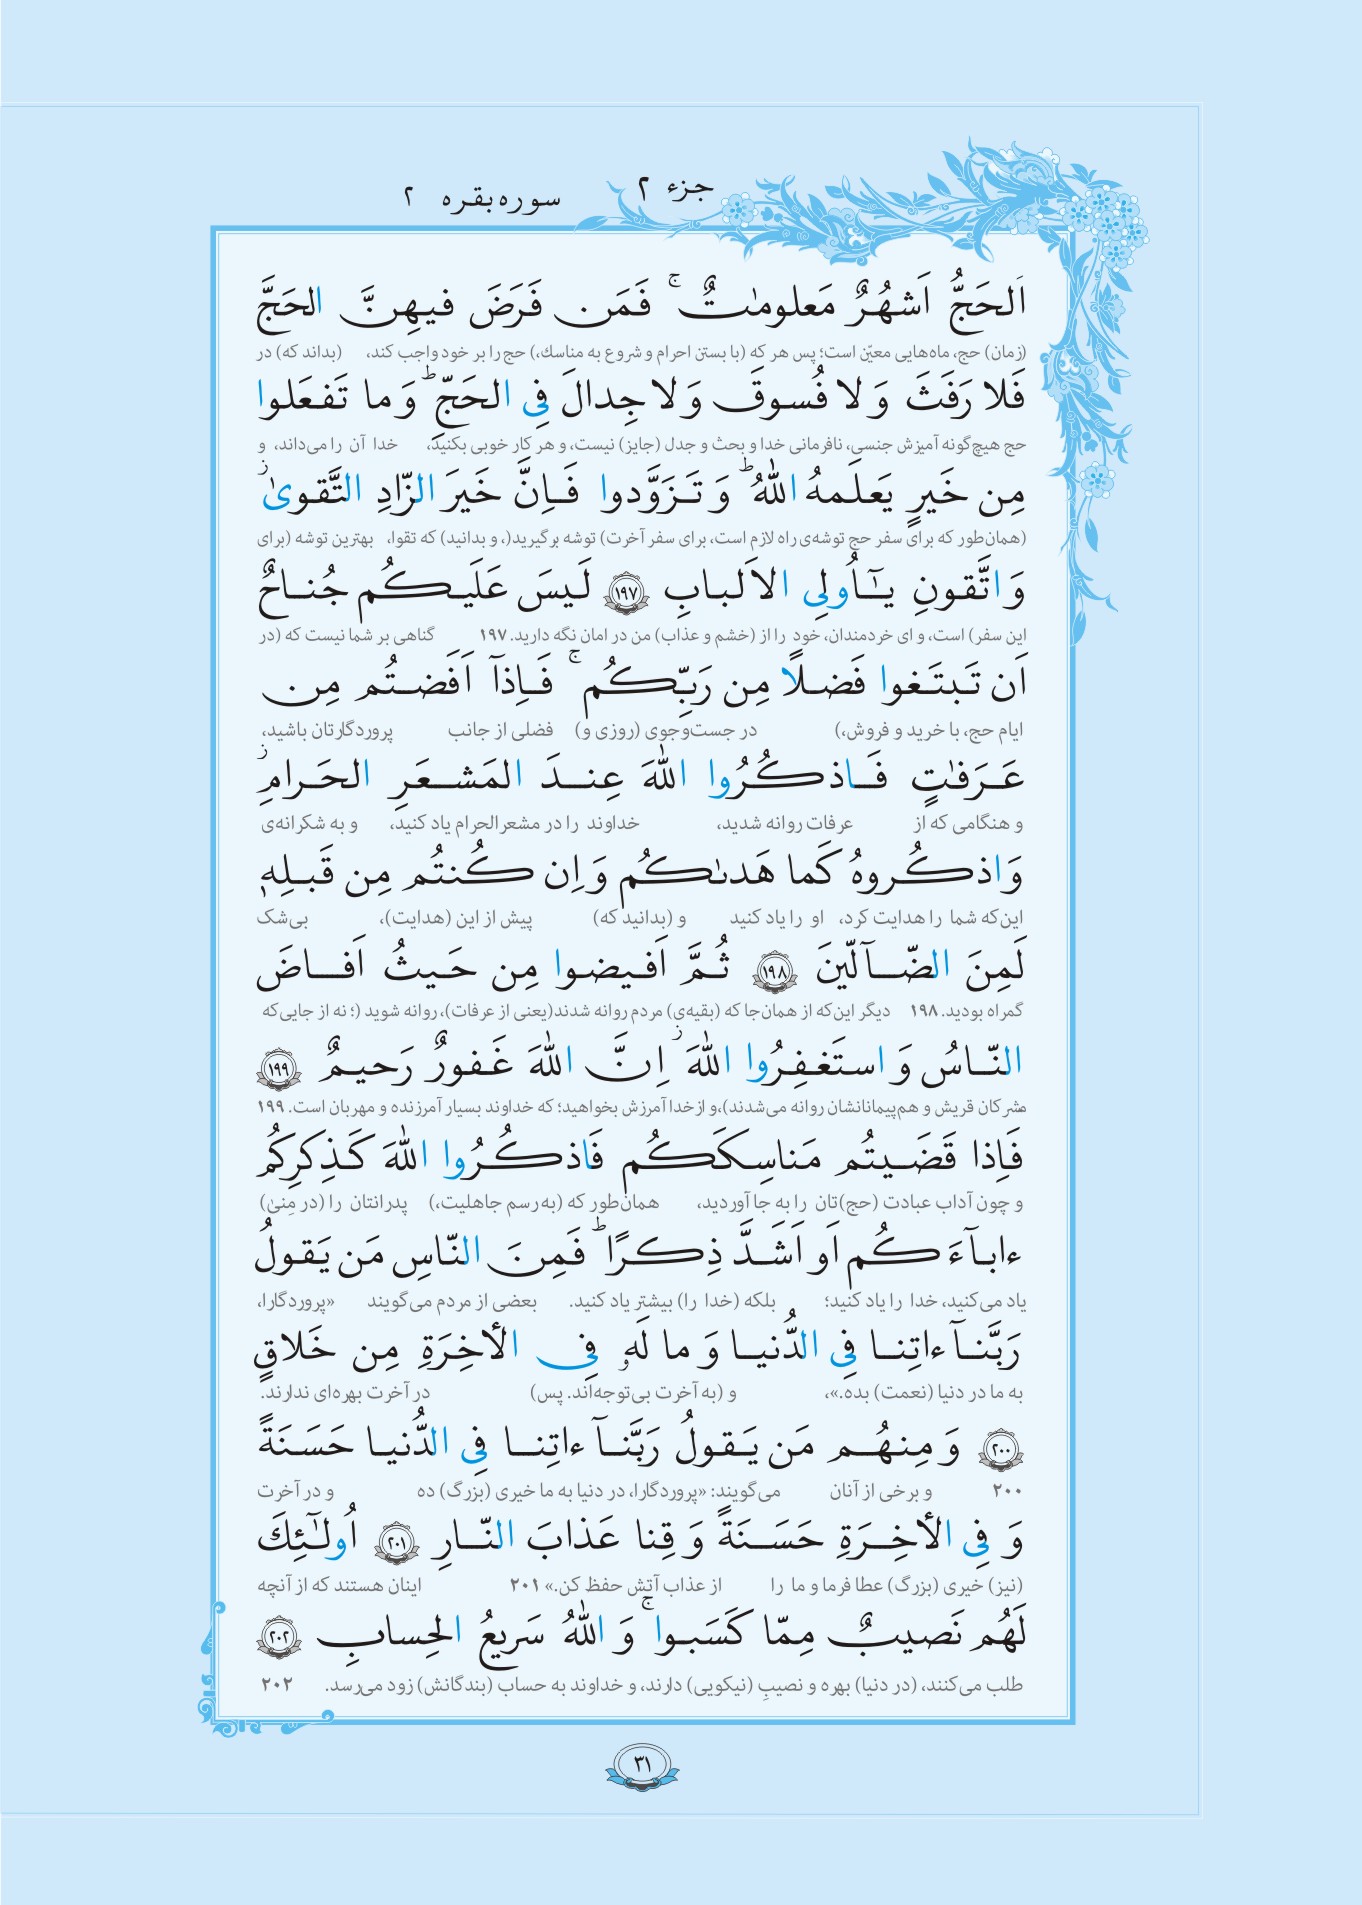 جزء ۲ سوره بقره ۲
اَلحَجُّ اَشهُرٌ مَعلومٰتٌ ۚ فَمَن فَرَضَ فیهِنَّ الحَجَّ
(زمان) حج، ماه‌هایی معیّن است؛ پس هر که (با بستن احرام و شروع به مناسك،) حج را بر خود واجب کند، (بداند که) در
فَلا رَفَثَ وَ لا فُسوقَ وَ لا جِدالَ فِی الحَجِّ ؕ وَ ما تَفعَلوا
حج هیچ‌گونه آمیزش جنسی، نافرمانی خدا و بحث و جدل (جایز) نیست، و هر کار خوبی بکنید، خدا آن را می‌داند، و
مِن خَیرٍ یَعلَمهُ اللّٰهُ ؕ وَ تَزَوَّدوا فَاِنَّ خَیرَ الزّادِ التَّقویٰ ز
(همان‌طور که برای سفر حج توشه‌ی راه لازم است، برای سفر آخرت) توشه برگیرید(، و بدانید) که تقوا، بهترین توشه (برای
وَ اتَّقونِ یـٰٓاُولِی الاَلبابِ ۱۹۷ لَیسَ عَلَیکُم جُناحٌ
این سفر) است، و ای خردمندان، خود را از (خشم و عذاب) من در امان نگه دارید. ۱۹۷ گناهی بر شما نیست که (در
اَن تَبتَغوا فَضلًا مِن رَبِّکُم ۚ فَاِذآ اَفَضتُم مِن
ایام حج، با خرید و فروش،) در جست‌وجوی (روزی و) فضلی از جانب پروردگارتان باشید،
عَرَفٰتٍ فَاذکُرُوا اللّٰهَ عِندَ المَشعَرِ الحَرامِ ز
و هنگامی که از عرفات روانه شدید، خداوند را در مشعرالحرام یاد کنید، و به شکرانه‌ی
وَ اذکُروهُ کَما هَدىٰکُم وَ اِن کُنتُم مِن قَبلِهٖ
این‌که شما را هدایت کرد، او را یاد کنید و (بدانید که) پیش از این (هدایت)، بی‌شک
لَمِنَ الضّآلّینَ ۱۹۸ ثُمَّ اَفیضوا مِن حَیثُ اَفاضَ
گمراه بودید. ۱۹۸ دیگر این‌که از همان‌جا که (بقیه‌ی) مردم روانه شدند(یعنی از عرفات)، روانه شوید (؛ نه از جایی‌که
النّاسُ وَ استَغفِرُوا اللّٰهَ ز اِنَّ اللّٰهَ غَفورٌ رَحیمٌ ۱۹۹
مشرکان قریش و هم‌پیمانانشان روانه می‌شدند)،و از خدا آمرزش بخواهید؛ که خداوند بسیار آمرزنده و مهربان است. ۱۹۹
فَاِذا قَضَیتُم مَناسِکَکُم فَاذکُرُوا اللّٰهَ کَذِکرِکُم
و چون آداب عبادت (حج)تان را به جا آوردید، همان‌طور که (به رسم جاهلیت،) پدرانتان را (در مِنیٰ)
ءابآءَکُم اَو اَشَدَّ ذِکرًا ؕ فَمِنَ النّاسِ مَن یَقولُ
یاد می‌کنید، خدا را یاد کنید؛ بلکه (خدا را) بیشتر یاد کنید. بعضی از مردم می‌گویند «پروردگارا،
رَبَّنآ ءاتِنا فِی الدُّنیا وَ ما لَهٗ فِی الأخِرَةِ مِن خَلاقٍ
به ما در دنیا (نعمت) بده.»، و (به آخرت بی‌توجه‌اند. پس) در آخرت بهره‌ای ندارند.
۲۰۰ وَ مِنهُم مَن یَقولُ رَبَّنآ ءاتِنا فِی الدُّنیا حَسَنَةً
۲۰۰ و برخی از آنان می‌گویند: «پروردگارا، در دنیا به ما خیری (بزرگ) ده و در آخرت
وَ فِی الأخِرَةِ حَسَنَةً وَ قِنا عَذابَ النّارِ ۲۰۱ اُولـٰٓئِكَ
(نیز) خیری (بزرگ) عطا فرما و ما را از عذاب آتش حفظ کن.» ۲۰۱ اینان هستند که از آنچه
لَهُم نَصیبٌ مِمّا کَسَبوا ۚ وَ اللّٰهُ سَریعُ الحِسابِ ۲۰۲
طلب می‌کنند، (در دنیا) بهره و نصیبِ (نیکویی) دارند، و خداوند به حساب (بندگانش) زود می‌رسد. ۲۰۲
۳۱